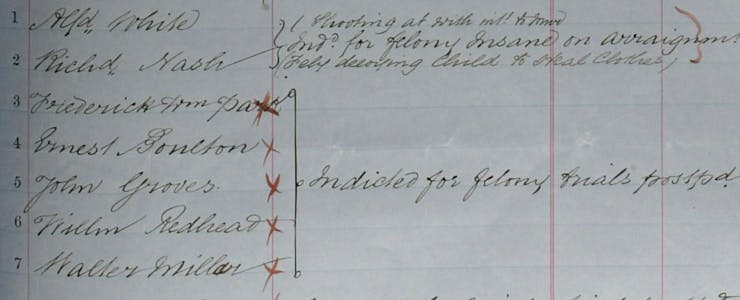 1 Alfd. White (Shooting at with intt. to
Indd. for felony Insane on arraignmt.
2 Richd. Nash (Felsy decoying Child to Steal Clothes)
3 Frederick Wm Park
4 Ernest Boulton
5 John Groves. Indicted for felony trials postpd.
6 Willm Redhead
7 Walter Millar